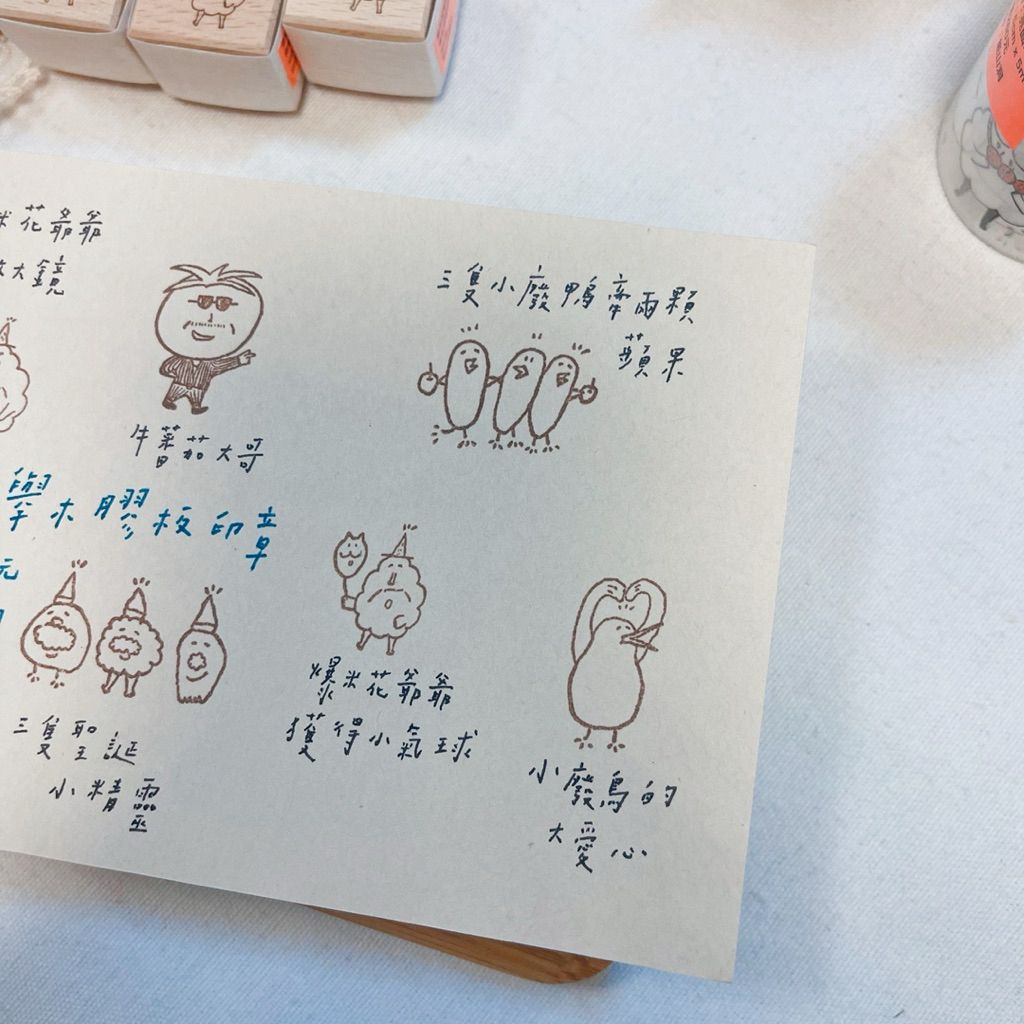 米花爺爺
放大鏡
牛蕃茄大哥
三隻小廢鴨帶兩顆
蘋果
櫸木膠板印章
元
三隻聖誕
小精靈
爆米花爺爺
獲得小氣球
小廢鳥的
大愛心